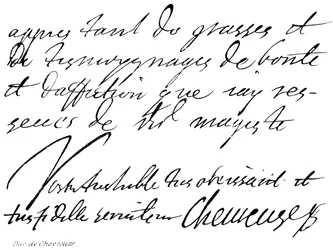 appres tant de grasses et
de tesmoygnages de bonté
et daffection que iay res-
geues de
Vostre tres humble tres obeissant et
tres fidelle serviteur Chevreuse
Duc de Chevreuse